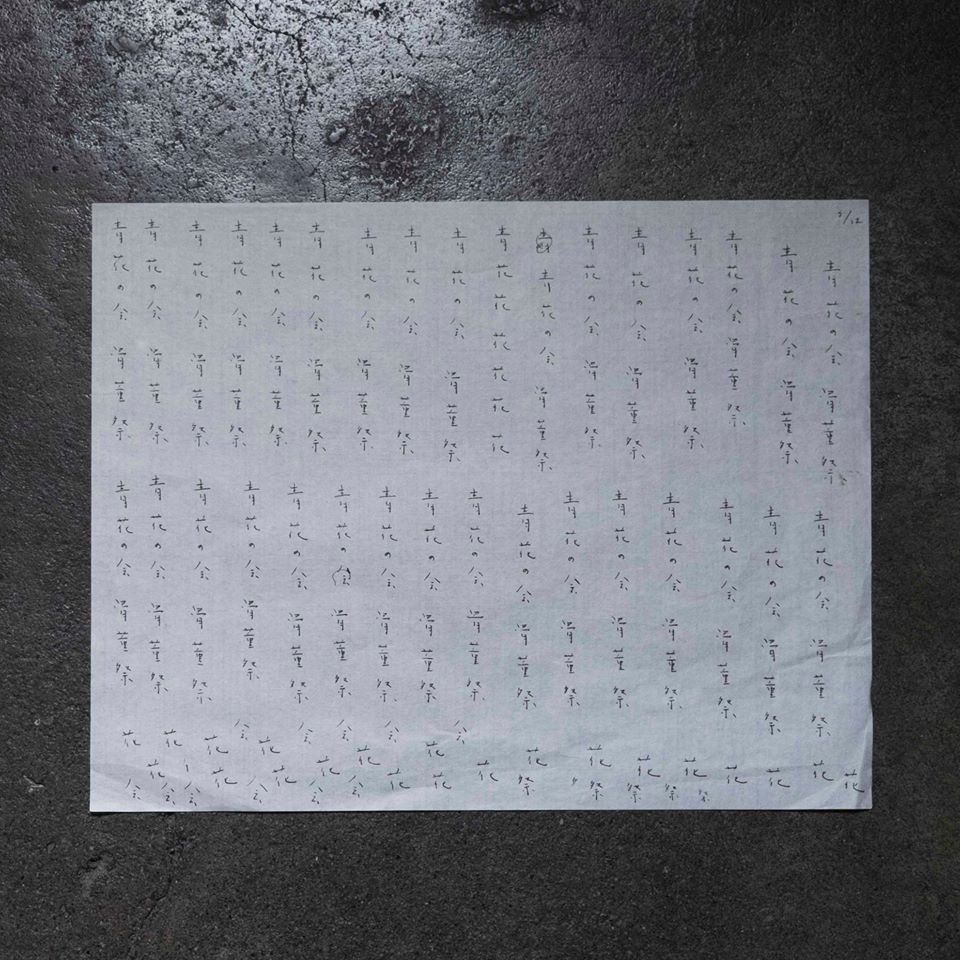 青花の会 骨董祭
青花の会 骨董祭
青花の会 骨董祭
青花の会 骨董祭
青花の会 骨董祭
青花の会 骨董祭
青花の会 骨董祭
青花花花花
青花の会 骨董祭
青花の会 骨董祭
青花の会 骨董祭
青花の会 骨董祭
青花の会 骨董祭
青花の会 骨董祭
青花の会 骨董祭
青花の会 骨董祭
青花の会 骨董祭
青花の会 骨董祭
青花の会 骨董祭
青花の会 骨董祭
青花の会 骨董祭
青花の会 骨董祭
青花の会 骨董祭
青花の会 骨董祭
青花の会 骨董祭
青花の会 骨董祭
青花の会 骨董祭
青花の会 骨董祭
青花の会 骨董祭
青花の会 骨董祭
青花の会 骨董祭
青花の会 骨董祭
青花の会 骨董祭
花
花
花
花
花祭
祭
花祭
花祭
花祭
花
会
花花
会花
花
会会
花
会会
花
花
会会
花花
会
花会
花
花会